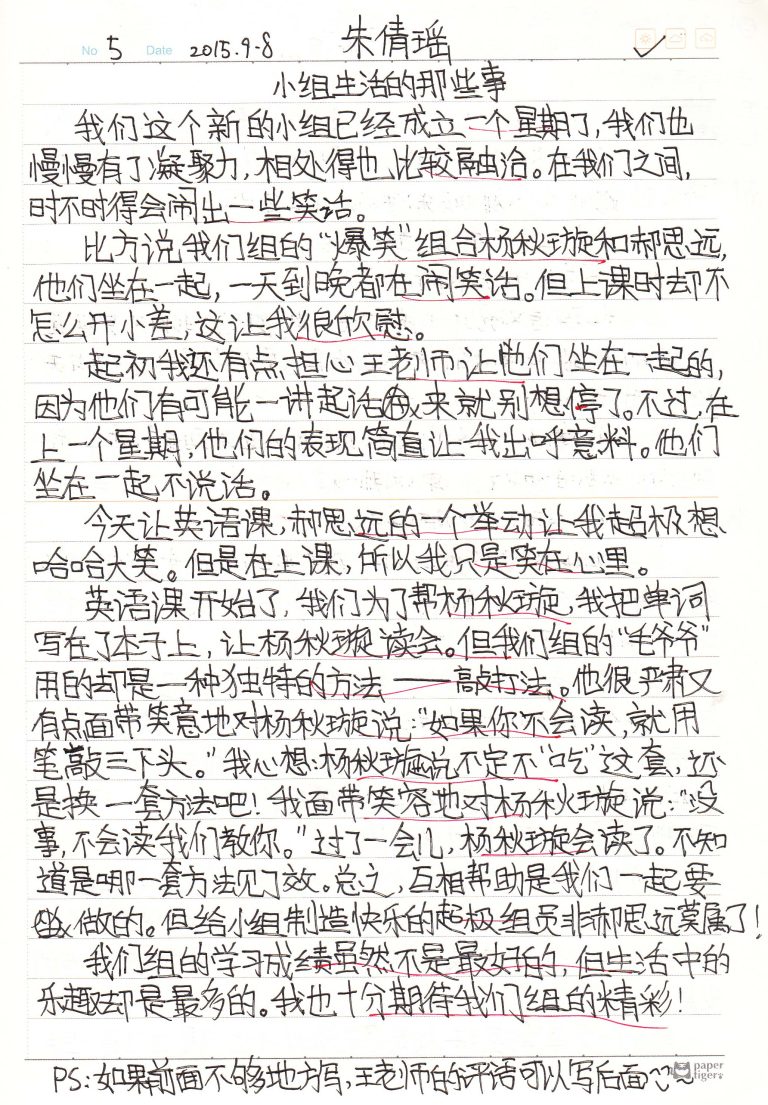 No 5 Date 2015.9.8 朱倩瑶
小组生活的那些事
我们这个新的小组已经成立一个星期了,我们也
慢慢有了凝聚力,相处得也比较融洽。在我们之间,
时不时得会闹出一些笑话。
比方说我们组的“爆笑”组合杨秋璇和郝思远,
他们坐在一起,一天到晚都在闹笑话。但上课时却不
怎么开小差,这让我很欣慰。
起初我还有点担心王老师让他们坐在一起的,
因为他们有可能一讲起话来就别想停了。不过,在
上一个星期,他们的表现简直让我出呼意料。他们
坐在一起不说话。
今天让英语课,郝思远的一个举动让我超极想
哈哈大笑。但是在上课,所以我只是笑在心里。
英语课开始了,我们为了帮杨秋璇,我把单词
写在了本子上,让杨秋璇读会。但我们组的“毛爷爷”
用的却是一种独特的方法——敲打法。他很严肃又
有点面带笑意地对杨秋璇说:“如果你不会读,就用
笔敲三下头。”我心想:杨秋璇说不定不“吃”这套,还
是换一套方法吧!我面带笑容地对杨秋璇说:“没
事,不会读我们教你。”过了一会儿,杨秋璇会读了。不知
道是哪一套方法见了效。总之,互相帮助是我们一起要
做的。但给小组制造快乐的超极组员非郝思远莫属了!
我们组的学习成绩虽然不是最好的,但生活中的
乐趣却是最多的。我也十分期待我们组的精彩!
paper tiger
PS:如果前面不够地方写,王老师的评语可以写后面~~